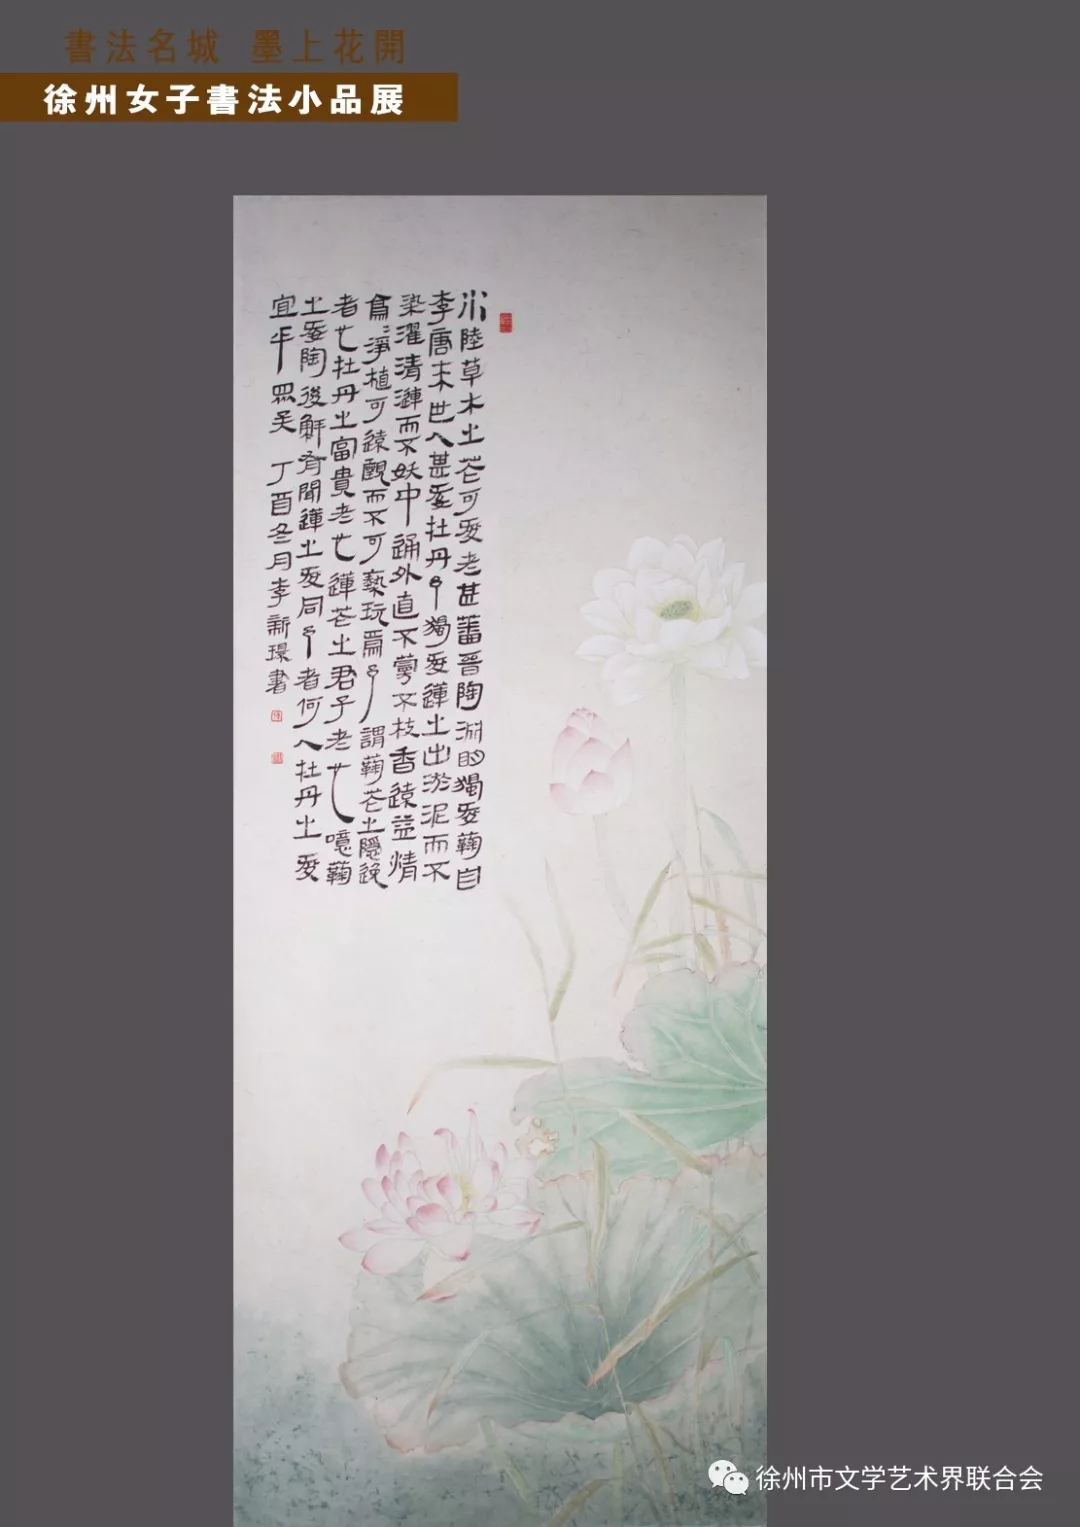 書法名城 墨上花開
徐州女子書法小品展
水陸草木之花可愛者甚蕃晉陶淵明獨愛蘜自
李唐末世人甚愛牡丹予獨愛蓮之出淤泥而不
染濯清漣而不妖中通外直不蔓不枝香遠益清
亭〻淨植可遠觀而不可褻玩焉予謂蘜花之隱逸
者也牡丹之富貴者也蓮花之君子者也噫蘜
之愛陶後鮮有聞蓮之愛同予者何人牡丹之愛
宜乎眾矣 丁酉冬月李新璟書
徐州市文学艺术界联合会